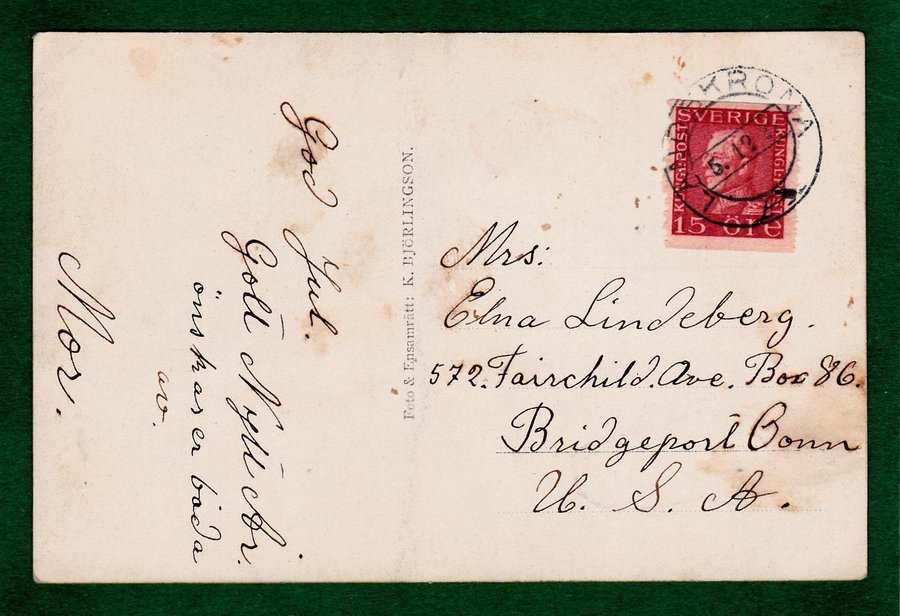 God Jul.
Gott Nytt År.
önskas er båda
av.
Mor.
Foto & Ensamrätt: K. BJÖRLINGSON.
LANDSKRONA
5.12
SVERIGE
KUNGL. POST
KUNGL. POST
15 ÖRE
Mrs:
Elna Lindeberg.
572. Fairchild. Ave. Box 86.
Bridgeport Conn
U. S. A.